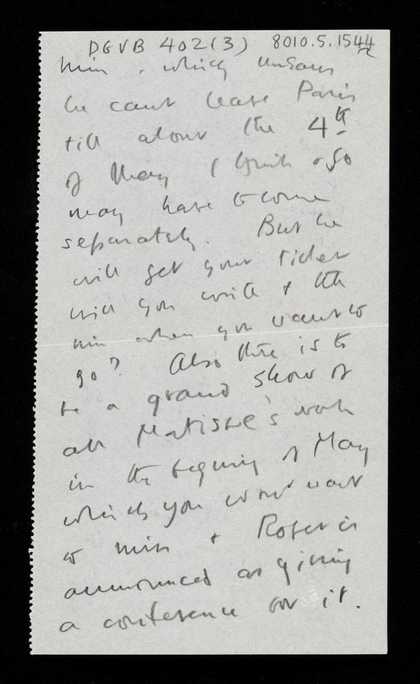 DGVB 402(3) 8010.5.1544
him, which means
he can't leave Paris
till about the 4th
of May I think & so
may have to come
separately. But he
will get your ticket
will you write & tell
him when you want to
go? Also there is to
be a grand show of
all Matisse's work
in the beginning of May
which you won't want
to miss & Roger is
announced as giving
a conference on it.